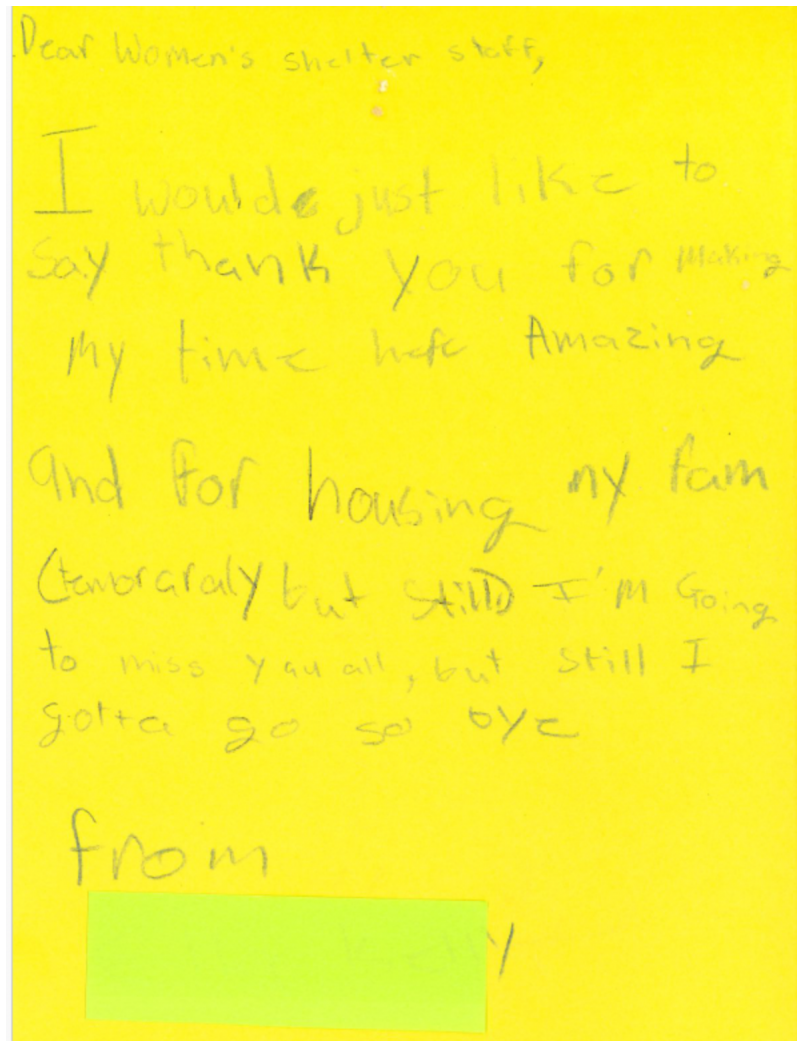 Dear Women's shelter staff,
I would just like to
say thank you for Making
My time here Amazing
and for housing my fam
(temboraraly but still) I'm Going
to miss you all, but still I
gotta go so bye
from